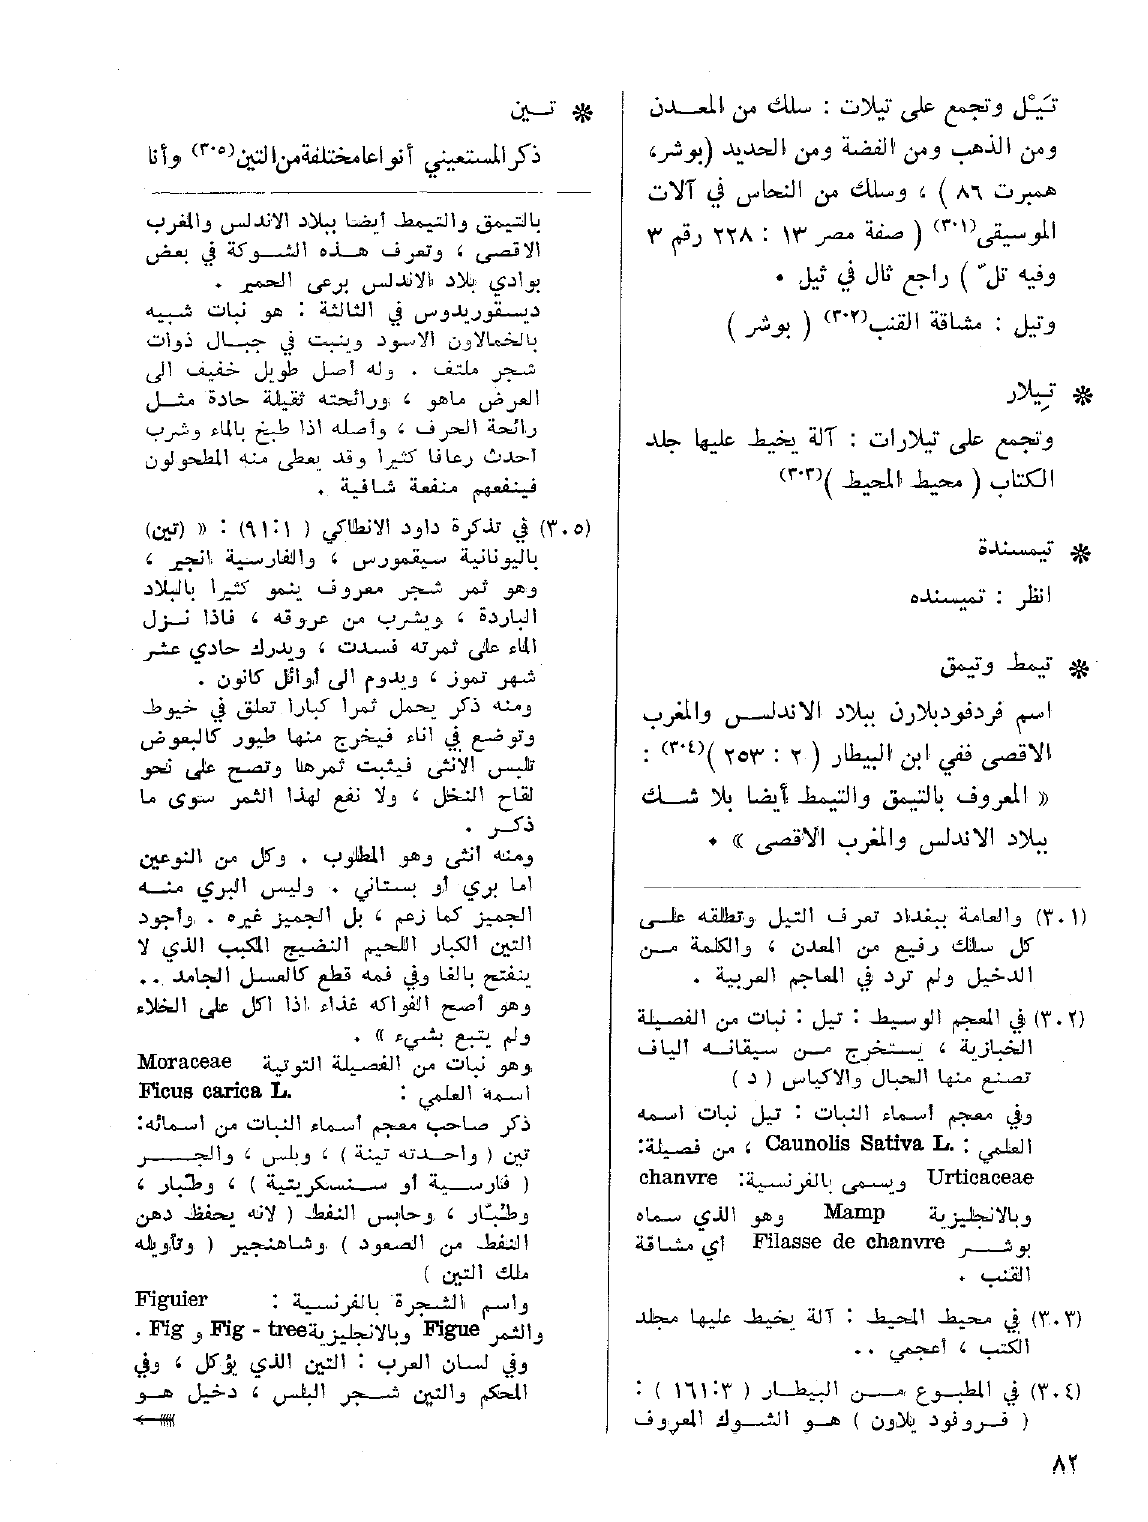 تَيْل وتجمع على تيلات : سلك من المعدن
ومن الذهب ومن الفضة ومن الحديد (بوشر،
همبرت ٨٦ ) ، وسلك من النحاس في آلات
الموسيقى(٣٠١) ( صفة مصر ١٣ : ٢٢٨ رقم ٣
وفيه تلّ ) راجع ثال في ثيل .
وتيل : مشاقة القنب(٣٠٢) ( بوشر )
* تِيلار
وتجمع على تيلارات : آلة يخيط عليها جلد
الكتاب ( محيط المحيط )(٣٠٣)
* تيمسندة
انظر : تميسنده
* تيمط وتيمق
اسم فردفودبلارن ببلاد الاندلس والمغرب
الاقصى ففي ابن البيطار ( ٢ : ٢٥٣ )(٣٠٤) :
« المعروف بالتيمق والتيمط أيضا بلا شك
ببلاد الاندلس والمغرب الاقصى » .
(٣٠١) والعامة ببغداد تعرف التيل وتطلقه على
كل سلك رفيع من المعدن ، والكلمة من
الدخيل ولم ترد في المعاجم العربية .
(٣٠٢) في المعجم الوسيط : تيل : نبات من الفصيلة
الخبازية ، يستخرج من سيقانه الياف
تصنع منها الحبال والاكياس ( د )
وفي معجم أسماء النبات : تيل نبات اسمه
العلمي : Caunolis Sativa L. ، من فصيلة:
Urticaceae ويسمى بالفرنسية: chanvre
وبالانجليزية Mamp وهو الذي سماه
بوشر Filasse de chanvre أي مشاقة
القنب .
(٣٠٣) في محيط المحيط : آلة يخيط عليها مجلد
الكتب ، أعجمي ..
(٣٠٤) في المطبوع من البيطار ( ٣:١٦١ ) :
( فروفود يلاون ) هو الشوك المعروف
* تين
ذكر المستعيني أنواعا مختلفة من التين(٣٠٥) وأنا
بالتيمق والتيمط أيضا ببلاد الاندلس والمغرب
الاقصى ، وتعرف هذه الشوكة في بعض
بوادي بلاد الاندلس برعى الحمير .
ديسقوريدوس في الثالثة : هو نبات شبيه
بالخمالاون الاسود وينبت في جبال ذوات
شجر ملتف . وله أصل طويل خفيف الى
العرض ماهو ، ورائحته ثقيلة حادة مثل
رائحة الحرف ، وأصله اذا طبخ بالماء وشرب
أحدث رعافا كثيرا وقد يعطى منه المطحولون
فينفعهم منفعة شافية .
(٣٠٥) في تذكرة داود الانطاكي ( ٩١:١) : « (تين)
باليونانية سيقمورس ، والفارسية انجير ،
وهو ثمر شجر معروف ينمو كثيرا بالبلاد
الباردة ، ويشرب من عروقه ، فاذا نزل
الماء على ثمرته فسدت ، ويدرك حادي عشر
شهر تموز ، ويدوم الى أوائل كانون .
ومنه ذكر يحمل ثمرا كبارا تعلق في خيوط
وتوضع في اناء فيخرج منها طيور كالبعوض
تلبس الانثى فيثبت ثمرها وتصح على نحو
لقاح النخل ، ولا نفع لهذا الثمر سوى ما
ذكر .
ومنه أنثى وهو المطلوب . وكل من النوعين
اما بري أو بستاني . وليس البري منه
الجميز كما زعم ، بل الجميز غيره . وأجود
التين الكبار اللحيم النضيج المكبب الذي لا
ينفتح بالغا وفي فمه قطع كالعسل الجامد ..
وهو أصح الفواكه غذاء اذا اكل على الخلاء
ولم يتبع بشيء » .
وهو نبات من الفصيلة التوتية Moraceae
اسمه العلمي : Ficus carica L.
ذكر صاحب معجم أسماء النبات من أسمائه:
تين ( واحدته تينة ) ، وبلس ، والجر
( فارسية أو سنسكريتية ) ، وطبار ،
وطبّار ، وحابس النفط ( لانه يحفظ دهن
النفط من الصعود ) وشاهنجير ( وتأويله
ملك التين )
واسم الشجرة بالفرنسية : Figuier
والثمر Figue وبالانجليزية Fig - tree و Fig .
وفي لسان العرب : التين الذي يؤكل ، وفي
المحكم والتين شجر البلس ، دخيل هو
٨٢